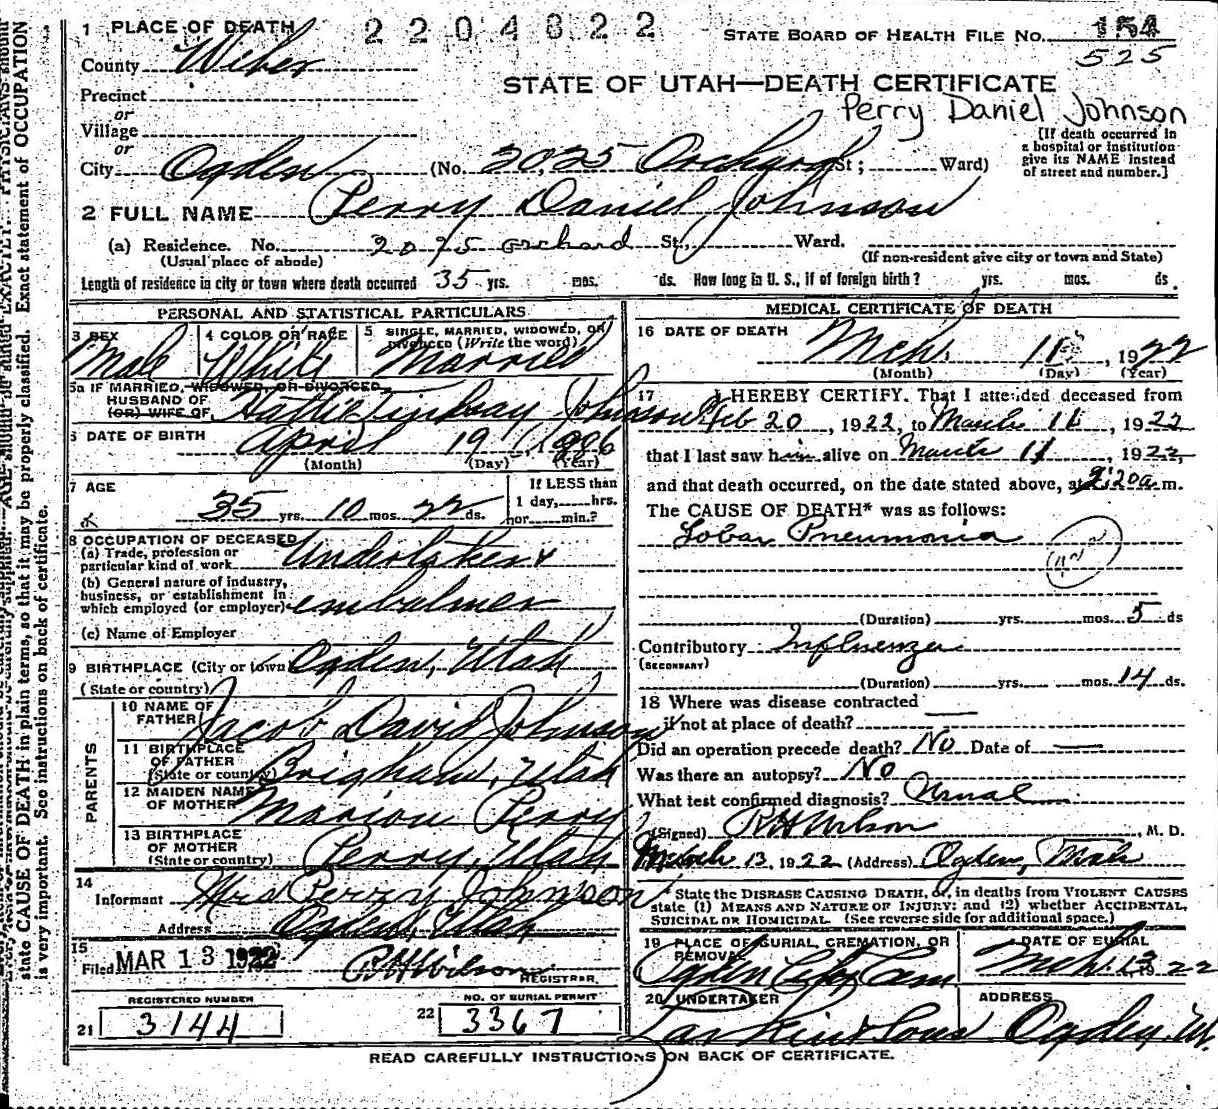 1 PLACE OF DEATH 2204822 STATE BOARD OF HEALTH FILE No. 154
525
County Weber
STATE OF UTAH—DEATH CERTIFICATE
Precinct
Perry Daniel Johnson
or
Village
or
City Ogden (No. 2025 Orchard St; Ward)
[If death occurred in
a hospital or institution
give its NAME instead
of street and number.]
2 FULL NAME Perry Daniel Johnson
(a) Residence. No. 2075 orchard St., Ward.
(Usual place of abode) (If non-resident give city or town and State)
Length of residence in city or town where death occurred 35 yrs. mos. ds. How long in U. S., if of foreign birth? yrs. mos. ds.
PERSONAL AND STATISTICAL PARTICULARS
3 SEX 4 COLOR OR RACE 5 SINGLE, MARRIED, WIDOWED, OR
DIVORCED (Write the word)
Male White Married
5a IF MARRIED, WIDOWED, OR DIVORCED
HUSBAND OF
(OR) WIFE OF Hattie Lindsay Johnson
6 DATE OF BIRTH April 19
(Month) (Day) (Year)
7 AGE If LESS than
35 yrs. 10 mos. 22 ds. 1 day, hrs.
or min.?
8 OCCUPATION OF DECEASED
(a) Trade, profession or
particular kind of work Undertaker &
(b) General nature of industry,
business, or establishment in
which employed (or employer) embalmer
(c) Name of Employer
9 BIRTHPLACE (City or town) Ogden, Utah
(State or country)
PARENTS
10 NAME OF
FATHER Jacob David Johnson
11 BIRTHPLACE
OF FATHER
(State or country) Brigham, Utah
12 MAIDEN NAME
OF MOTHER Marion Perry
13 BIRTHPLACE
OF MOTHER
(State or country) Perry, Utah
14
Informant Mrs Perry Johnson
Address Ogden, Utah
15
Filed MAR 13 1922 R H Wilson
REGISTRAR.
REGISTERED NUMBER NO. OF BURIAL PERMIT
21 3144 22 3367
MEDICAL CERTIFICATE OF DEATH
16 DATE OF DEATH
Mch. 11, 1922
(Month) (Day) (Year)
17 I HEREBY CERTIFY. That I attended deceased from
Feb 20, 1922, to March 11, 1922
that I last saw him alive on March 11, 1922,
and that death occurred, on the date stated above, at 2:20 a.m.
The CAUSE OF DEATH* was as follows:
Lobar Pneumonia
(Duration) yrs. mos. 5 ds
Contributory Influenza
(SECONDARY)
(Duration) yrs. mos. 14 ds.
18 Where was disease contracted
if not at place of death?
Did an operation precede death? No Date of
Was there an autopsy? No
What test confirmed diagnosis? Usual
(Signed) R H Wilson, M. D.
March 13, 1922 (Address) Ogden, Utah
* State the DISEASE CAUSING DEATH, or, in deaths from VIOLENT CAUSES
state (1) MEANS AND NATURE OF INJURY: and (2) whether ACCIDENTAL,
SUICIDAL OR HOMICIDAL. (See reverse side for additional space.)
19 PLACE OF BURIAL, CREMATION, OR DATE OF BURIAL
REMOVAL
Ogden City Cem Mch. 13 1922
20 UNDERTAKER ADDRESS
Larkin & Sons Ogden, U.
READ CAREFULLY INSTRUCTIONS ON BACK OF CERTIFICATE.
state CAUSE OF DEATH in plain terms, so that it may be properly classified. Exact statement of OCCUPATION
is very important. See instructions on back of certificate.